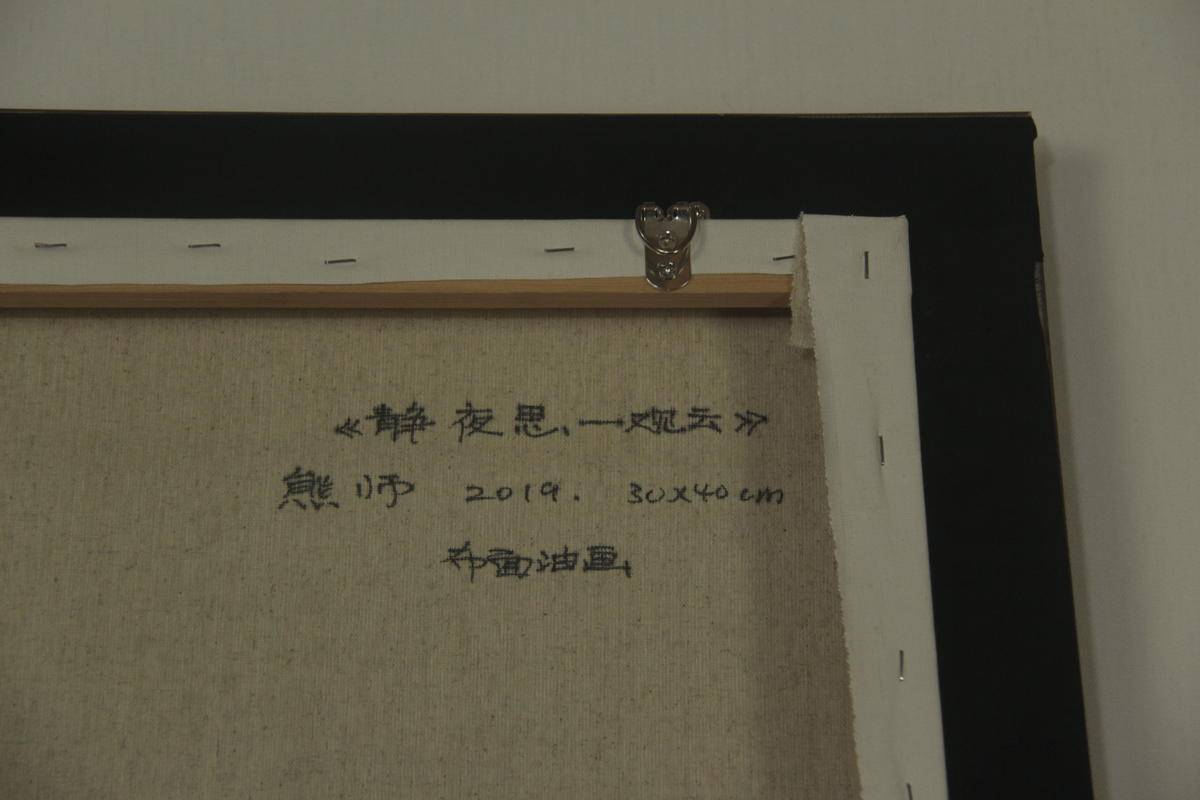 《静夜思、一观云》
熊师 2019. 30x40cm
布面油画